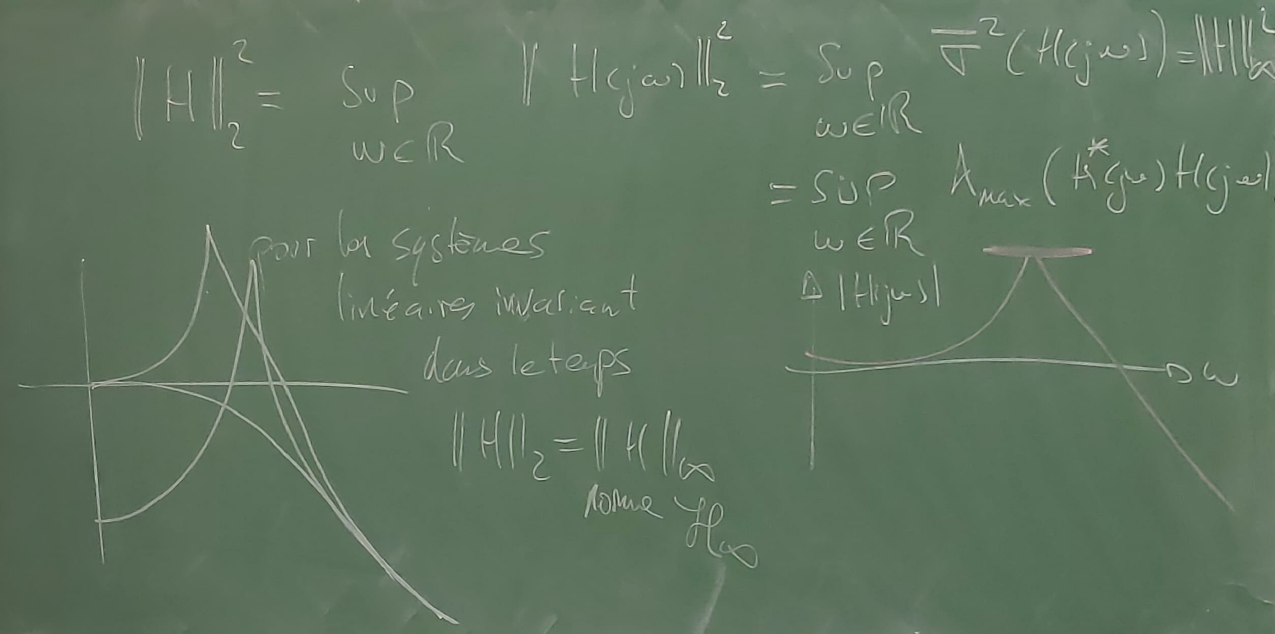 ‖H‖₂² = Sup ‖H(jω)‖₂² = Sup σ̄²(H(jω)) = ‖H‖∞²
ω∈ℝ ω∈ℝ
= Sup λmax(H*(jω)H(jω))
ω∈ℝ
pour les systèmes
linéaires invariant
dans le temps
‖H‖₂ = ‖H‖∞
norme ℋ∞
|H(jω)|
ω